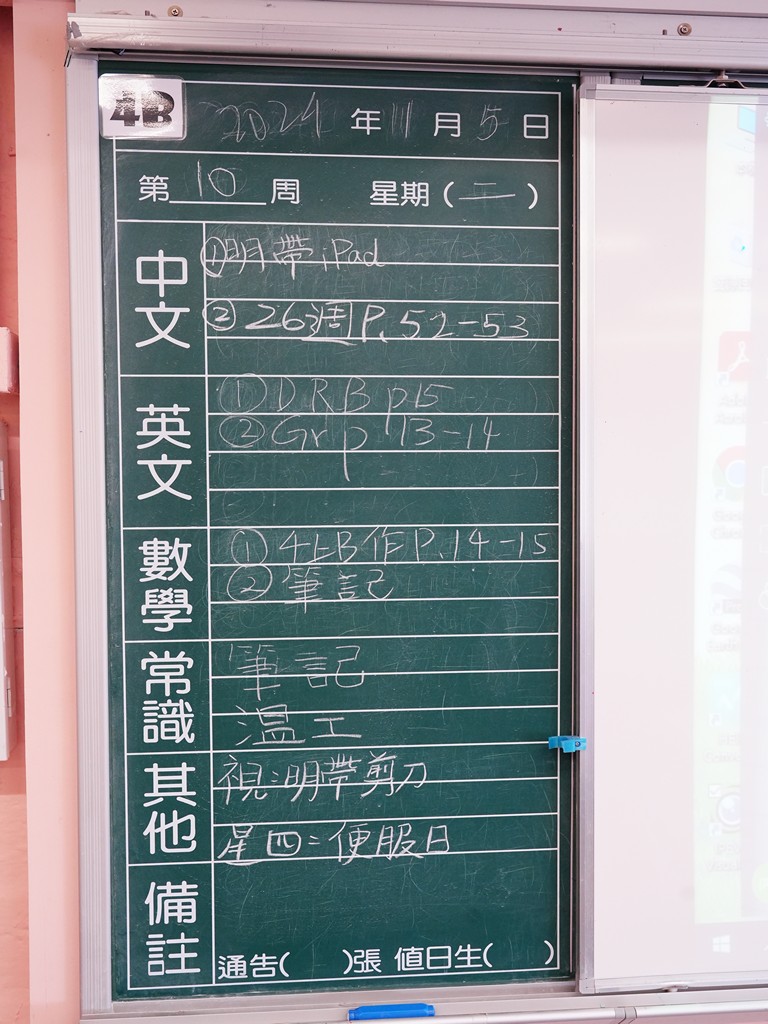 4B
2024 年 11 月 5 日
第 10 周 星期(二)
中文
①明帶iPad
②26週P.52-53
英文
①DRB p15
②Gr p 13-14
數學
①4上B作P.14-15
②筆記
常識
筆記
溫工
其他
視:明帶剪刀
星四:便服日
備註
通告( )張 值日生( )